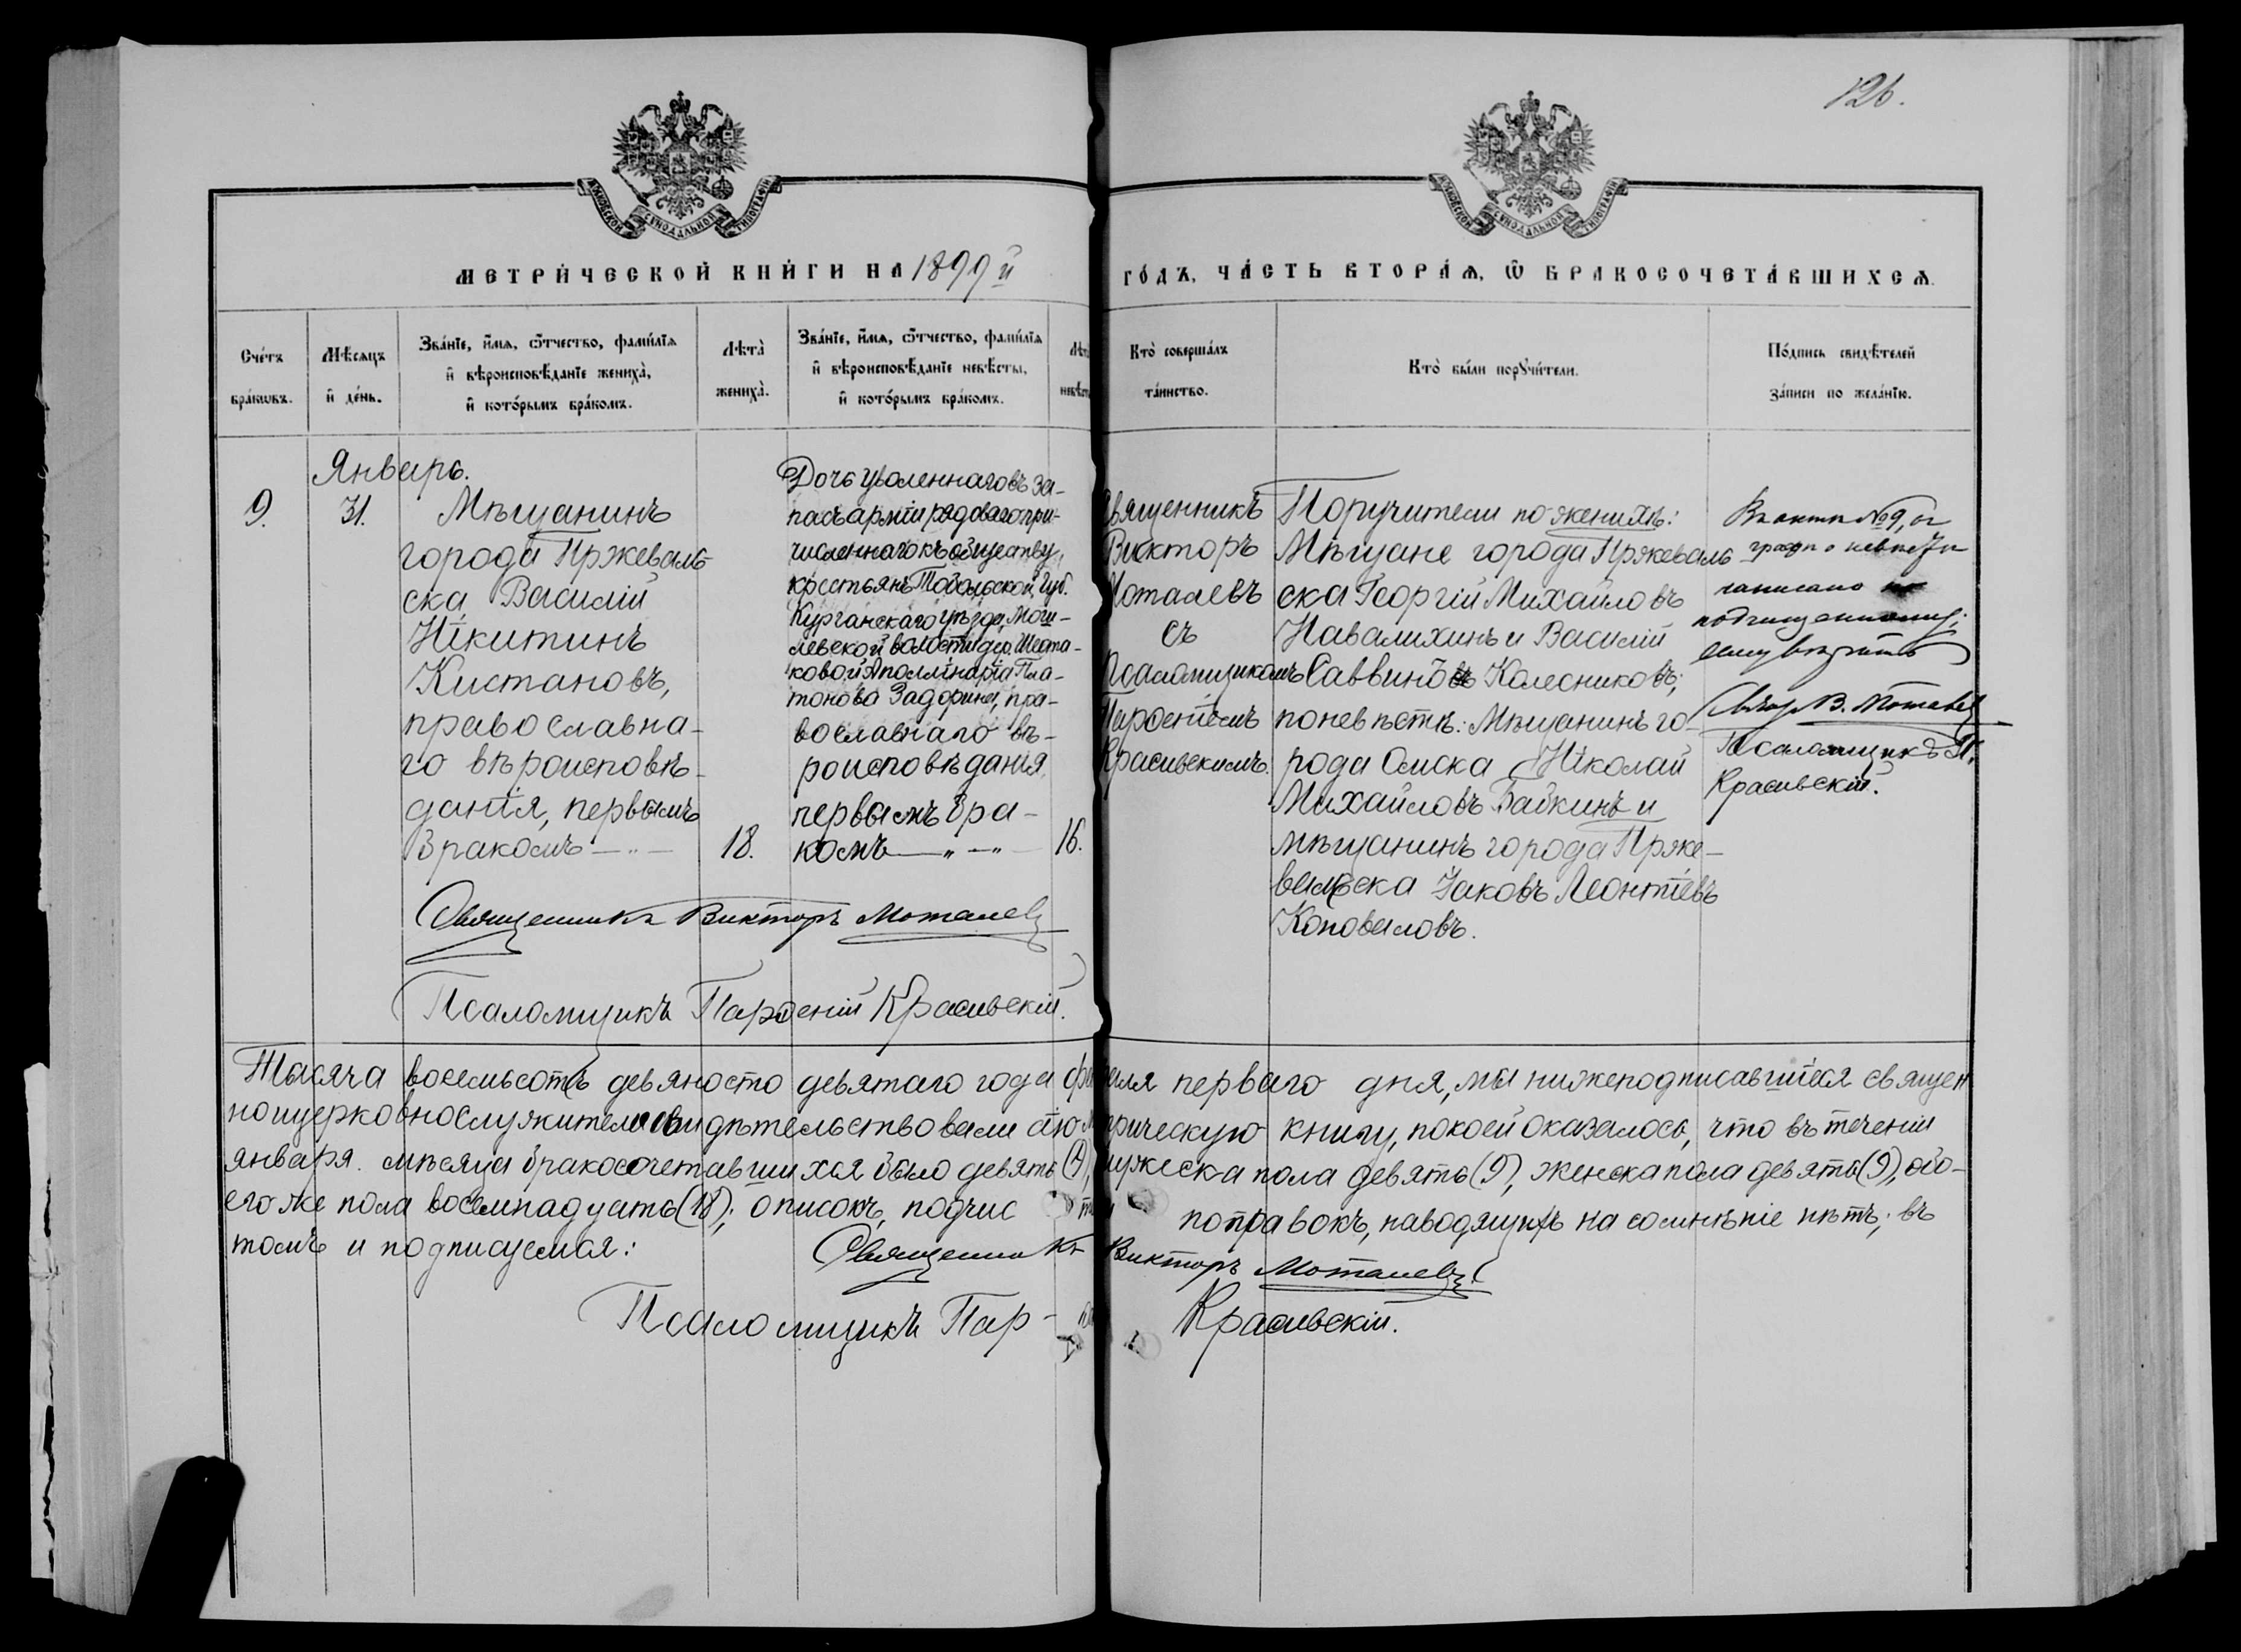 126.
МОСКОВСКОЙ СѴНОДАЛЬНОЙ ТИПОГРАФІИ
МОСКОВСКОЙ СѴНОДАЛЬНОЙ ТИПОГРАФІИ
МЕТРИ́ЧЕСКОЙ КНИ́ГИ НА 1899й
ГО́ДЪ, ЧА́СТЬ ВТОРА́Ѧ, Ѡ҆ БРАКОСОЧЕТА́ВШИХСѦ.
Сче́тъ бра́кѡвъ.
Мѣ́сѧцъ и҆ де́нь.
Зва́нїе, и҆́мѧ, ѻ҆́тчество, фами́лїѧ
и҆ вѣроисповѣ́данїе жениха̀,
и҆ кото́рымъ бра́комъ.
Лѣ́та̀ жениха̀.
Зва́нїе, и҆́мѧ, ѻ҆́тчество, фами́лїѧ
и҆ вѣроисповѣ́данїе невѣ́сты,
и҆ кото́рымъ бра́комъ.
Кто̀ соверша́лъ
та́инство.
Кто̀ бы́ли порꙋчи́тели.
По́дпись свидѣ́телей
за́писи по жела́нїю.
Январь.
9.
31.
Мѣщанинъ
города Пржеваль-
ска Василій
Никитинъ
Кистановъ,
православна-
го вѣроисповѣ-
данія, первымъ
бракомъ —„—
18.
Дочь уволеннаго въ за-
пасъ арміи рядоваго при-
численнаго къ обществу
крестьянъ Тобольской Губ.
Курганскаго уѣзда, Моги-
левской волости дер. Шеста-
ковой Аполлинарія Пла-
тонова Задорина, пра-
вославнаго вѣ-
роисповѣданія,
первымъ бра-
комъ —„—„—
16.
Священникъ
Викторъ
Моталевъ
съ
Псаломщикомъ
Парѳеніемъ
Красивскимъ.
Поручители по женихѣ:
Мѣщане города Пржеваль-
ска Георгій Михайловъ
Навалихинъ и Василій
Саввинъ Колесниковъ;
по невѣстѣ: Мѣщанинъ го-
рода Омска Николай
Михайловъ Бабкинъ и
мѣщанинъ города Прже-
вальска Іаковъ Леонтіевъ
Коноваловъ.
Въ актѣ №9, въ
графѣ о невѣстѣ
написано по
подчищенному;
сему вѣрить
Свящ. В. Моталевъ
Псаломщикъ П.
Красивскій.
Священникъ Викторъ Моталевъ
Псаломщикъ Парѳеній Красивскій.
Тысяча восемьсотъ девяносто девятаго года фев раля перваго дня, мы нижеподписавшіеся священ
ноцерковнослужители свидѣтельствовали сію метрическую книгу, по коей оказалось, что въ теченіи
января мѣсяца бракосочетавшихся было девять (9), мужеска пола девять (9), женска пола девять (9), обо-
его же пола восемнадцать (18); описокъ, подчис поправокъ, наводящихъ на сомнѣніе нѣтъ; въ
томъ и подписуемся: Священникъ Викторъ Моталевъ
Псаломщикъ Пар- Красивскій.